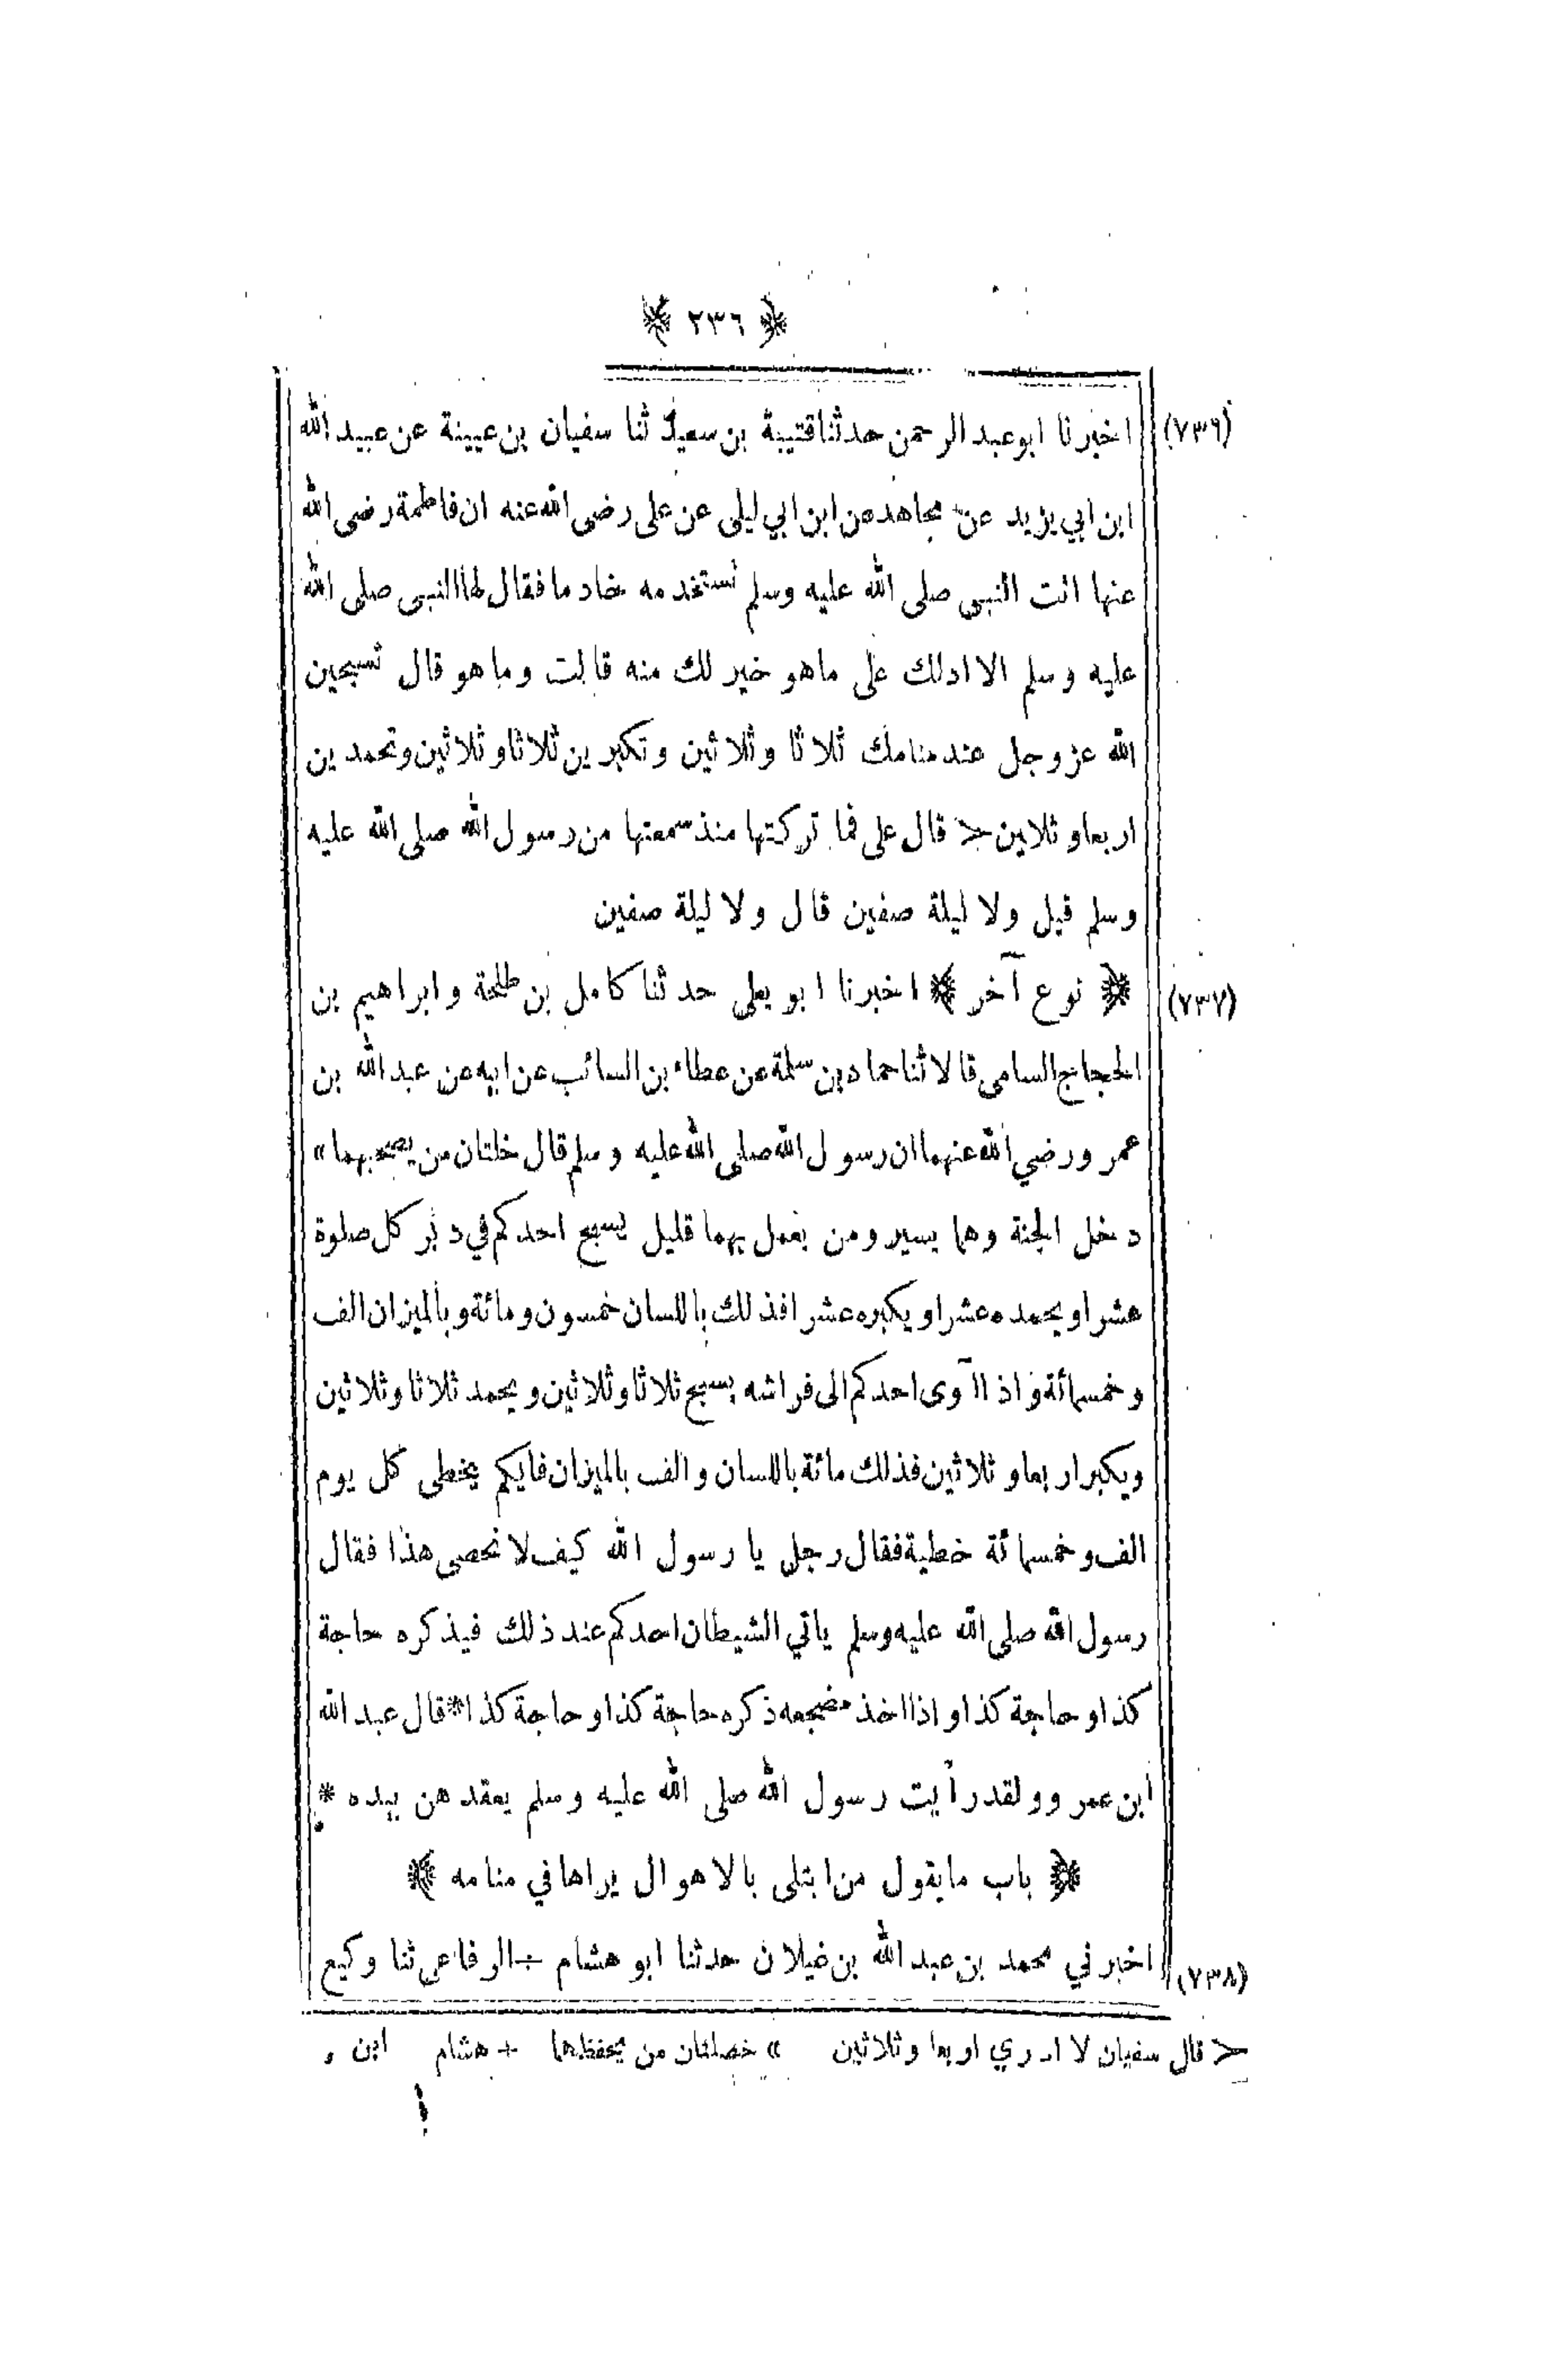 ﴿ ٢٣٦ ﴾
(٧٣٦) اخبرنا ابو عبد الرحمن حدثنا قتيبة بن سعيد ثنا سفيان بن عيينة عن عبيد الله
ابن ابي يزيد عن مجاهد عن ابن ابي ليلى عن على رضى الله عنه ان فاطمة رضى الله
عنها اتت النبى صلى الله عليه وسلم تستخدمه خادما فقال لها النبى صلى الله
عليه وسلم الا ادلك على ما هو خير لك منه قالت وما هو قال تسبحين
الله عز وجل عند منامك ثلاثا وثلاثين وتكبرين ثلاثا وثلاثين وتحمدين
اربعا وثلاين > قال على فما تركتها منذ سمعتها من رسول الله صلى الله عليه
وسلم قيل ولا ليلة صفين قال ولا ليلة صفين
(٧٣٧) ﴿ نوع آخر ﴾ اخبرنا ابو يعلى حدثنا كامل بن طلحة وابراهيم بن
الحجاج السامى قالا ثنا حماد بن سلمة عن عطاء بن السائب عن ابيه عن عبد الله بن
عمر ورضي الله عنهما ان رسول الله صلى الله عليه وسلم قال خلتان من يصحبهما »
دخل الجنة وهما يسير ومن يعمل بهما قليل يسبح احدكم في دبر كل صلوة
عشرا ويحمده عشرا ويكبره عشرا فذلك باللسان خمسون ومائة وبالميزان الف
وخمسمائة واذا آوى احدكم الى فراشه يسبح ثلاثا وثلاثين ويحمد ثلاثا وثلاثين
ويكبر اربعا وثلاثين فذلك مائة باللسان والف بالميزان فايكم يخطى كل يوم
الف وخمسمائة خطية فقال رجل يا رسول الله كيف لا نحصى هذا فقال
رسول الله صلى الله عليه وسلم ياتي الشيطان احدكم عند ذلك فيذكره حاجة
كذا وحاجة كذا واذا اخذ مضجعه ذكره حاجة كذا وحاجة كذا * قال عبد الله
ابن عمر وولقد رأيت رسول الله صلى الله عليه وسلم يعقد هن بيده *
﴿ باب ما يقول من ابتلى بالاهوال يراها في منامه ﴾
(٧٣٨) اخبرني محمد بن عبد الله بن غيلان حدثنا ابو هشام ÷ الرفاعى ثنا وكيع
> قال سفيان لا ادري اربعا وثلاثين » خصلتان من يحفظهما ÷ هشام ابن